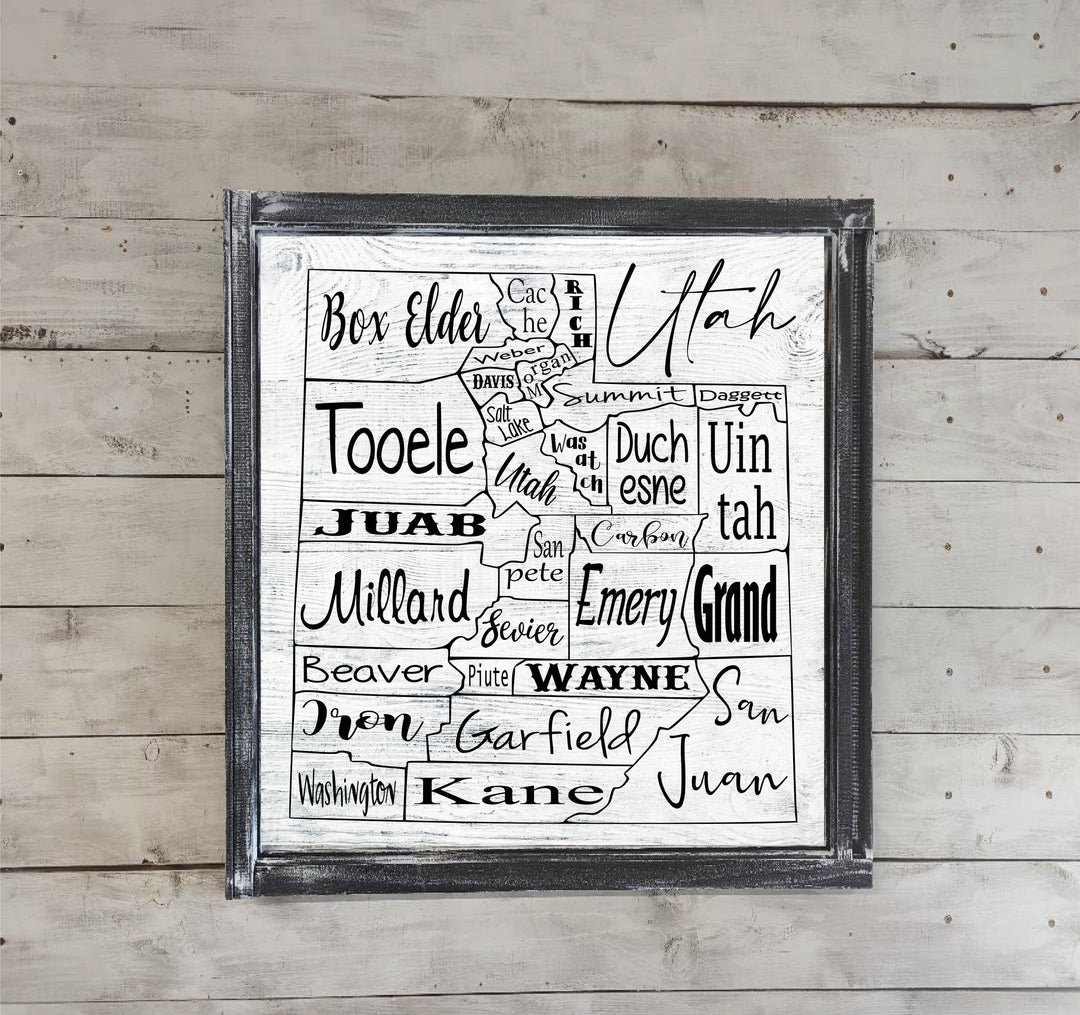 Utah
Box Elder
Cac
he
RICH
Weber
Morgan
DAVIS
Summit
Daggett
Tooele
Salt
Lake
Was
at
ch
Duch
esne
Uin
tah
Utah
JUAB
San
pete
Carbon
Millard
Sevier
Emery
Grand
Beaver
Piute
WAYNE
San
Juan
Iron
Garfield
Washington
Kane